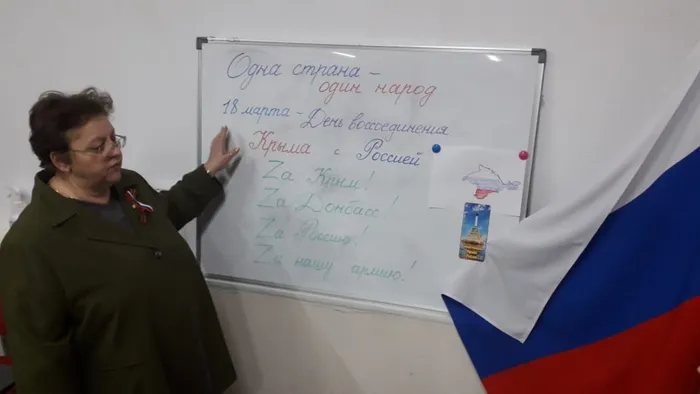 Одна страна –
один народ
18 марта – День воссоединения
Крыма с Россией
Zа Крым!
Zа Донбасс!
Zа Россию!
Zа нашу армию!